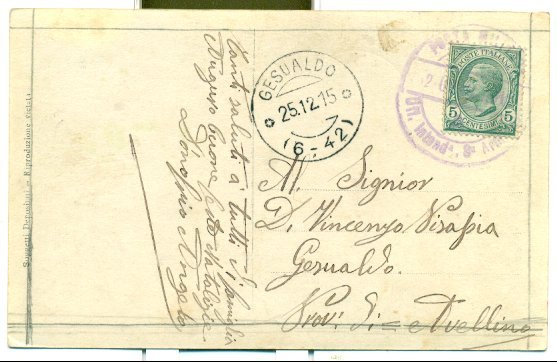 Soggetti Depositati - Riproduzione vietata
Tanti saluti a tutti di famiglia
Auguro buone feste Natalizie
D'Onofrio Angelo
GESUALDO
25.12.15
(6-42)
POSTA MILI
Uff. Intend. 3ª Arm
POSTE ITALIANE
5 5
CENTESIMI
Al Signior
D. Vincenzo Pisapia
Gesualdo.
Prov. di = Avellino